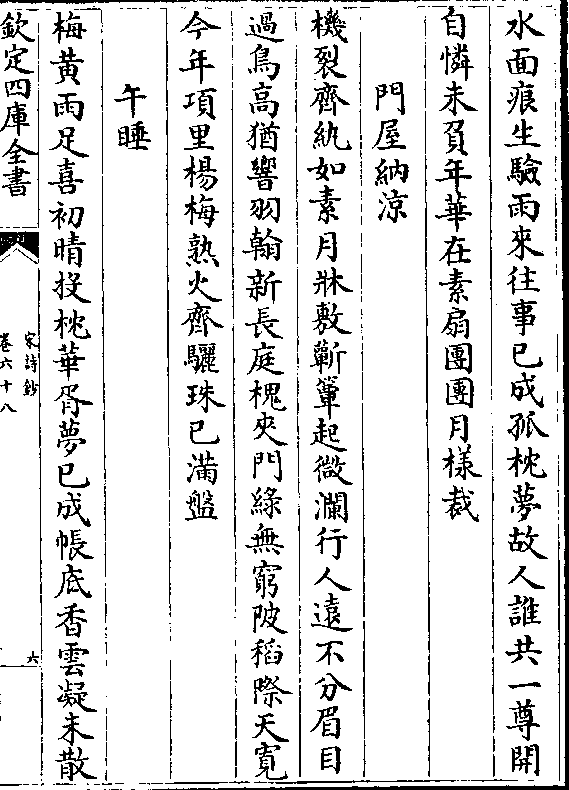 水面痕生驗雨來往事已成孤枕夢故人誰共一尊開
自憐未負年華在素扇團團月樣裁
門屋納涼
機裂齊紈如素月牀敷蘄簟起微瀾行人遠不分眉目
過鳥高猶響羽翰新長庭槐夾門綠無窮陂稻際天寛
今年項里楊梅熟火齊驪珠已滿盤
午睡
梅黃雨足喜初晴投枕華胥夢已成帳底香雲凝未散
欽定四庫全書
宋詩鈔
卷六十八
六